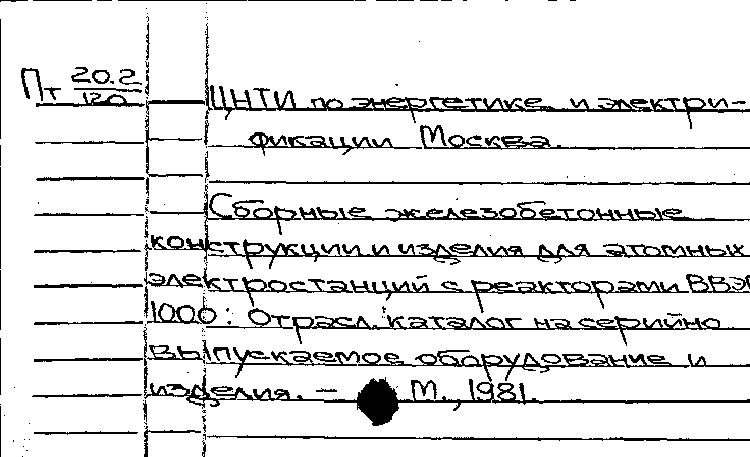 Пт 20.2
120
ЦНТИ по энергетике и электри-
фикации Москва.
Сборные железобетонные
конструкции и изделия для атомных
электростанций с реакторами ВВЭР
1000: Отрасл. каталог на серийно
выпускаемое оборудование и
изделия. — М., 1981.